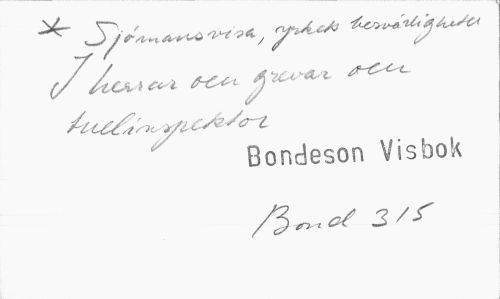 * Sjömansvisa, yrkets besvärligheter
I herrar och grevar och
tullinspektor
Bondeson Visbok
Bond 315